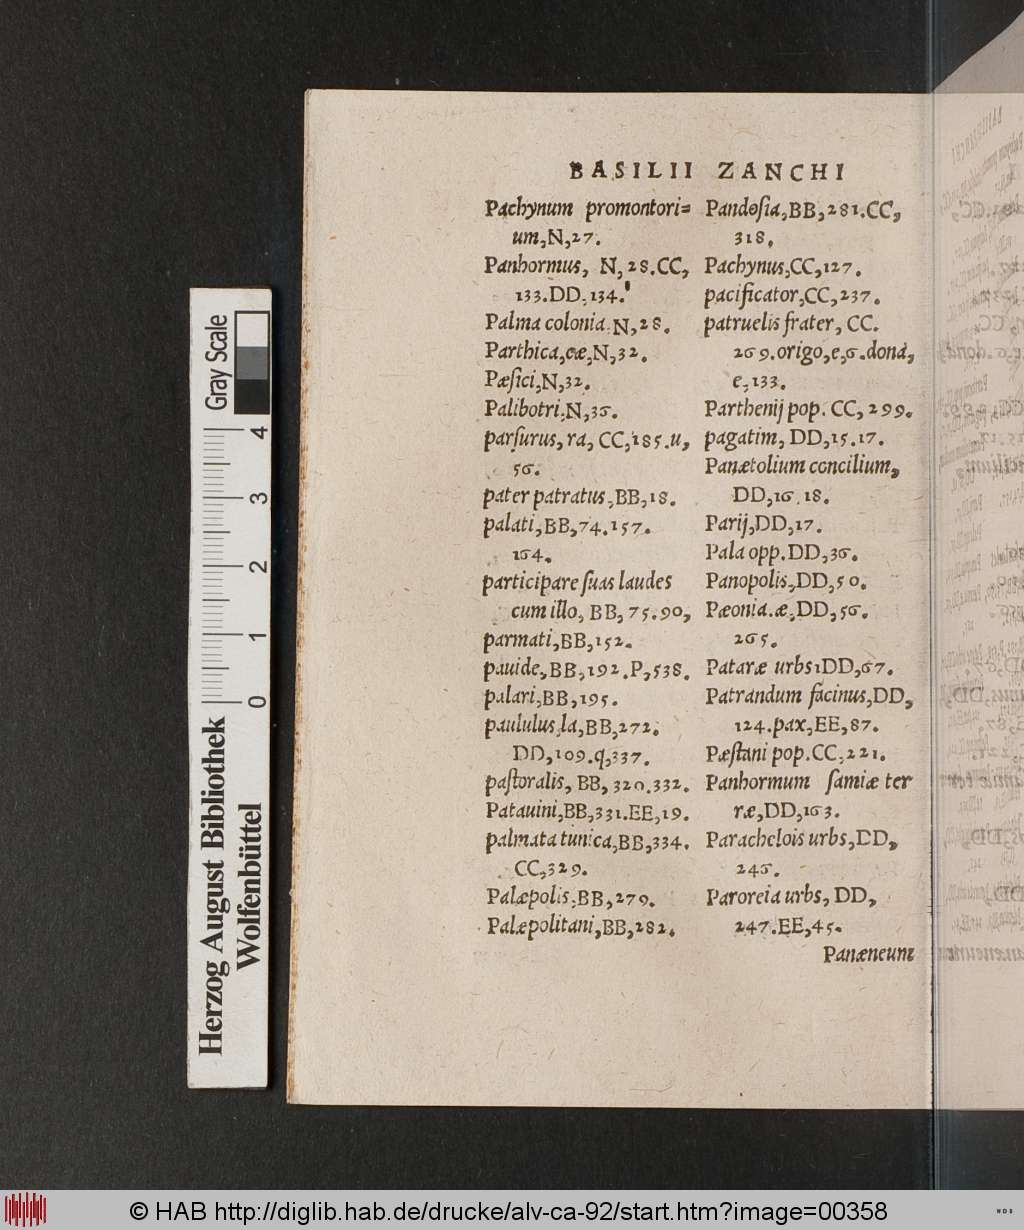 BASILII ZANCHI
Pachynum promontori=
um,N,27.
Panhormus, N,28.CC,
133.DD,134.
Palma colonia.N,28.
Parthica,æ,N,32.
Pæsici,N,32.
Palibotri,N,36.
parsurus, ra, CC,185.u,
56.
pater patratus,BB,18.
palati,BB,74.157.
164.
participare suas laudes
cum illo, BB, 75.90,
parmati,BB,152.
pauide,BB,192.P,538.
palari,BB,195.
paululus,la,BB,272.
DD,109.q,337.
pastoralis, BB, 320.332.
Patauini,BB,331.EE,19.
palmata tunica,BB,334.
CC,329.
Palæpolis,BB,279.
Palæpolitani,BB,282.
Pandosia,BB,281.CC,
318.
Pachynus,CC,127.
pacificator,CC,237.
patruelis frater, CC.
269.origo,e,6.dona,
e,133.
Parthenij pop. CC, 299.
pagatim, DD,15.17.
Panætolium concilium,
DD,16.18.
Parij,DD,17.
Pala opp.DD,36.
Panopolis,DD,50.
Pæonia.æ,DD,56.
265.
Pataræ urbs1DD,67.
Patrandum facinus,DD,
124.pax,EE,87.
Pæstani pop.CC,221.
Panhormum samiæ ter
ræ,DD,163.
Parachelois urbs,DD,
246.
Paroreia urbs, DD,
247.EE,45.
Panæneunt
Gray Scale
0 1 2 3 4
Herzog August Bibliothek
Wolfenbüttel
© HAB http://diglib.hab.de/drucke/alv-ca-92/start.htm?image=00358